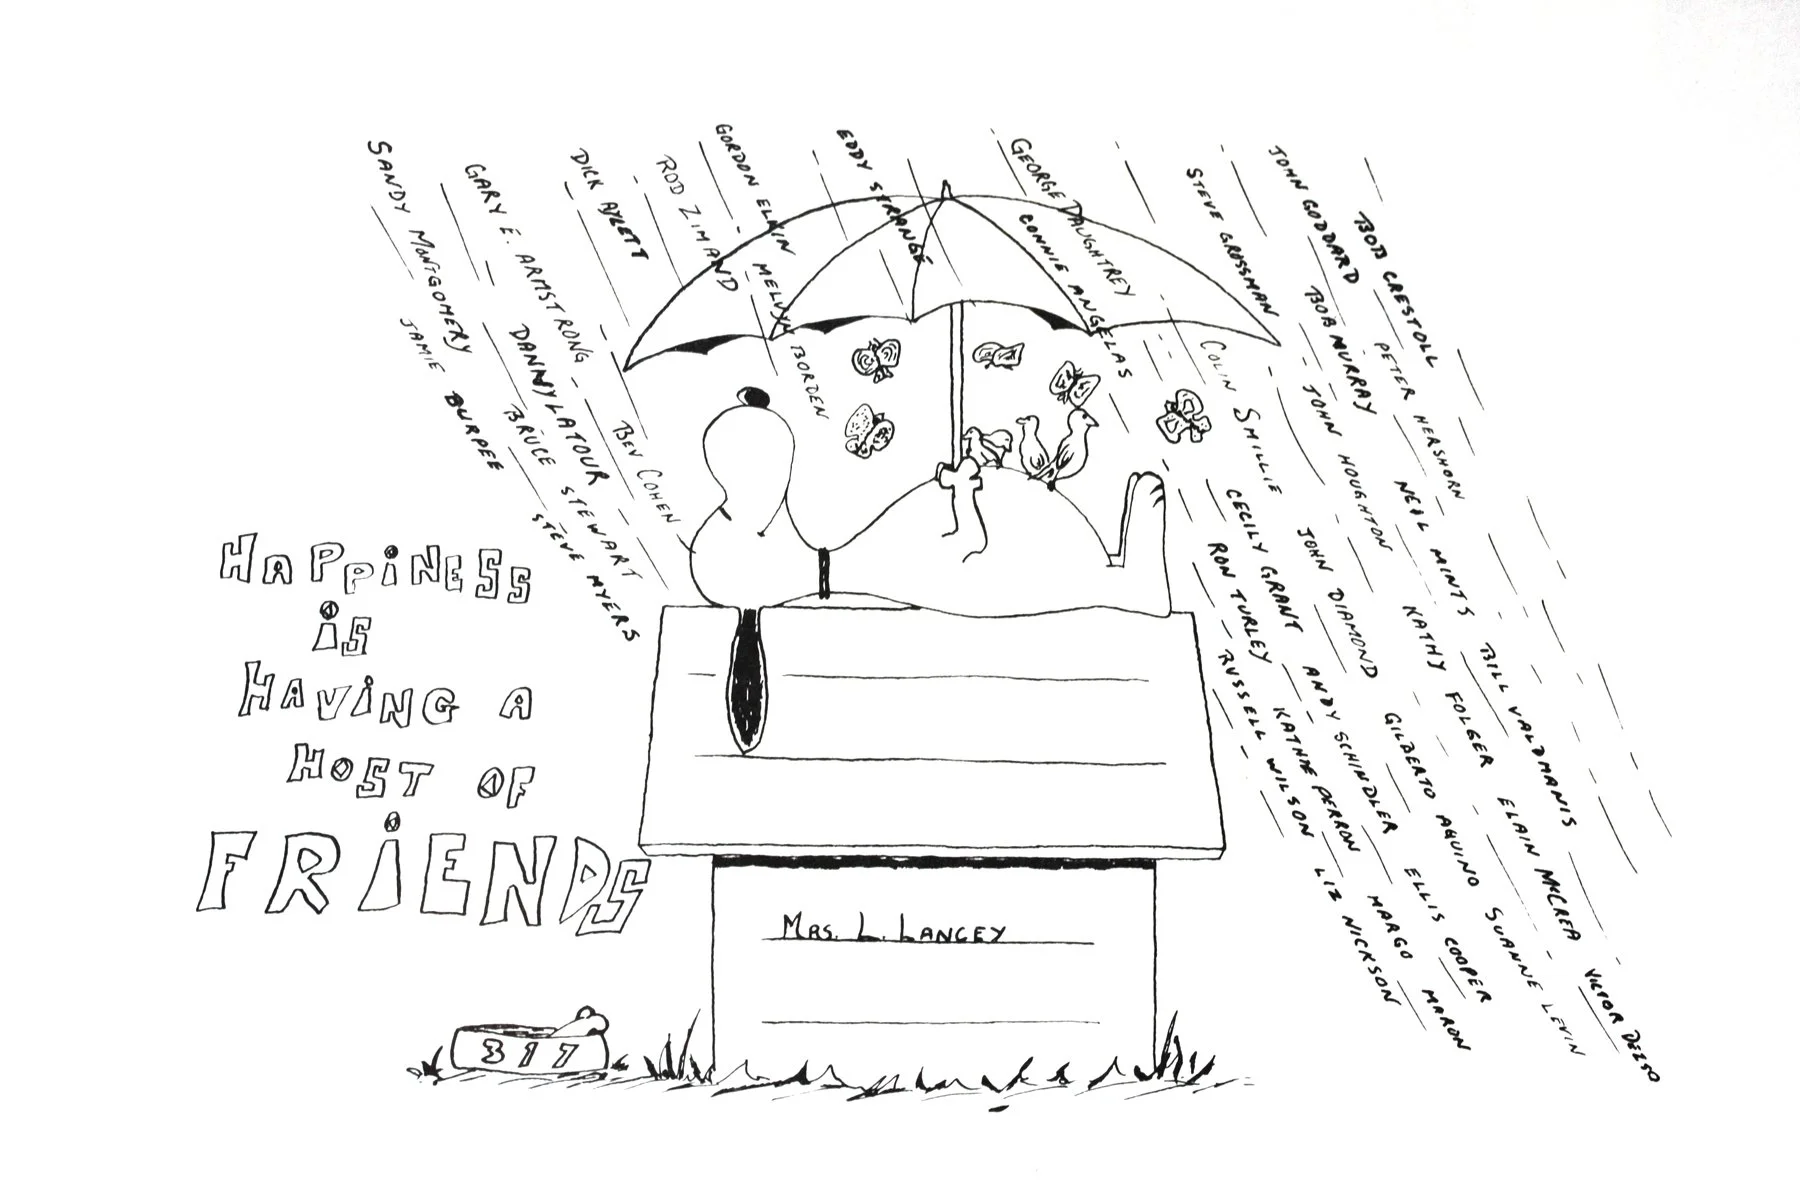 HAPPINESS
IS
HAVING A
HOST OF
FRIENDS
SANDY MONTGOMERY
JAMIE BURPEE
GARY E. ARMSTRONG
DANNY LATOUR
BRUCE STEWART
STEVE MYERS
DICK AYLETT
BEV COHEN
ROD ZIMAND
GORDON ELKIN
MELVYN BORDEN
EDDY STRANGE
GEORGE DAUGHTREY
CONNIE ANGELAS
STEVE GROSSMAN
COLIN SMILLIE
CECILY GRANT
RON TURLEY
RUSSELL WILSON
LIZ NICKSON
JOHN GODDARD
BOB MURRAY
JOHN HOUGHTON
JOHN DIAMOND
ANDY SCHINDLER
KATHIE PERRON
MARGO MARON
BOB CRESTOLL
PETER HERSHORN
NEIL MINTS
KATHY FOLGER
GILBERTO AQUINO
ELLIS COOPER
BILL VALDMANIS
ELAIN MCCREA
SUANNE LEVIN
VICTOR DEZSO
MRS. L. LANCEY
317